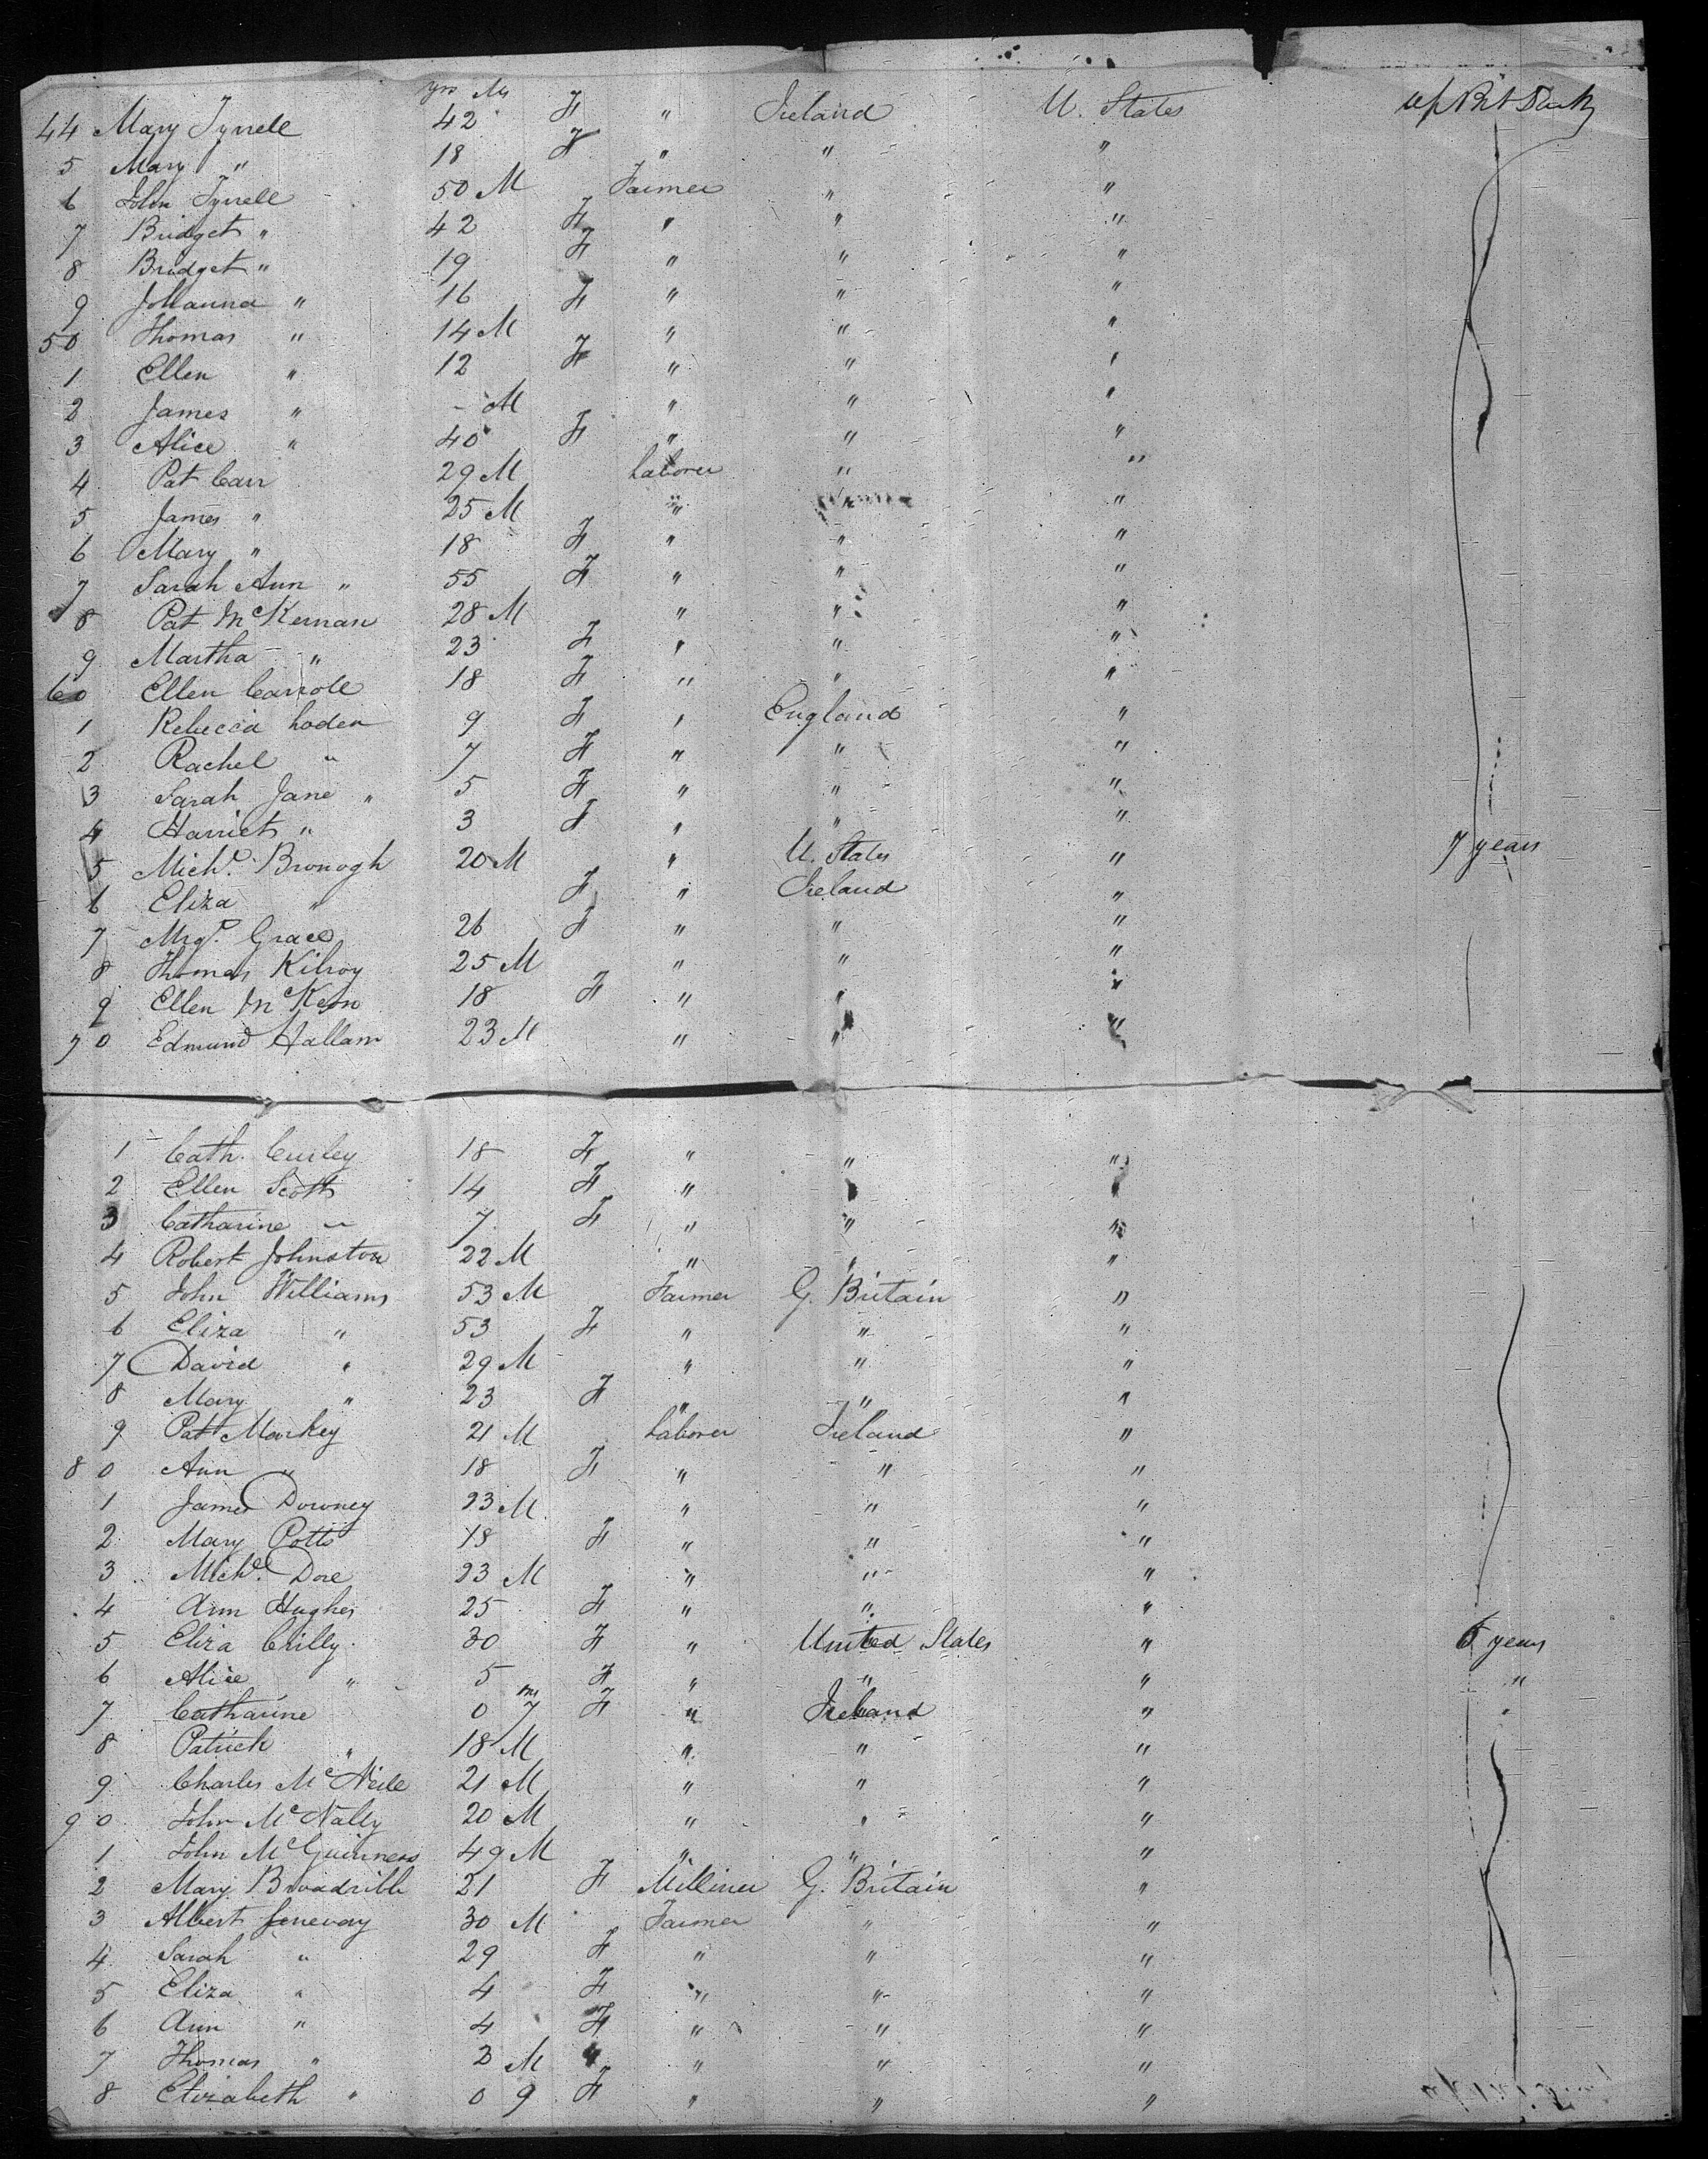 yrs Ms
44 Mary Tyrrell 42 F " Ireland U. States
5 Mary " 18 F " " "
6 John Tyrrell 50 M Farmer " "
7 Bridget " 42 F " " "
8 Bridget " 19 F " " "
9 Johanna " 16 F " " "
50 Thomas " 14 M " " "
1 Ellen " 12 F " " "
2 James " - M " " "
3 Alice " 40 F " " "
4 Pat Carr 29 M Laborer " "
5 James " 25 M " " "
6 Mary " 18 F " " "
7 Sarah Ann " 55 F " " "
8 Pat McKernan 28 M " " "
9 Martha " 23 F " " "
60 Ellen Carroll 18 F " " "
1 Rebecca Loden 9 F " England "
2 Rachel " 7 F " " "
3 Sarah Jane " 5 F " " "
4 Harriet " 3 F " " "
5 Michl. Bronogh 20 M " U. States " 7 years
6 Eliza " F " Ireland "
7 Mrgt. Grace 26 F " " "
8 Thomas Kilroy 25 M " " "
9 Ellen McKeon 18 F " " "
70 Edmund Hallam 23 M " " "
1 Cath. Curley 18 F " " "
2 Ellen Scott 14 F " " "
3 Catharine " 7 F " " "
4 Robert Johnston 22 M " " "
5 John Williams 53 M Farmer G. Britain "
6 Eliza " 53 F " " "
7 David " 29 M " " "
8 Mary " 23 F " " "
9 Pat Markey 21 M Laborer Ireland "
80 Ann " 18 F " " "
1 James Downey 23 M " " "
2 Mary Potts 18 F " " "
3 Michl. Dore 23 M " " "
4 Ann Hughes 25 F " " "
5 Eliza Crilly 30 F " United States " 6 years
6 Alice " 5 F " " " "
7 Catharine 0 7 ms F " Ireland " "
8 Patrick " 18 M " " "
9 Charles McNeile 21 M " " "
90 John McNally 20 M " " "
1 John McGuinness 49 M " " "
2 Mary Broadribb 21 F Milliner G. Britain "
3 Albert Jenevay 30 M Farmer " "
4 Sarah " 29 F " " "
5 Eliza " 4 F " " "
6 Ann " 4 F " " "
7 Thomas " 2 M " " "
8 Elizabeth " 0 9 F " " "